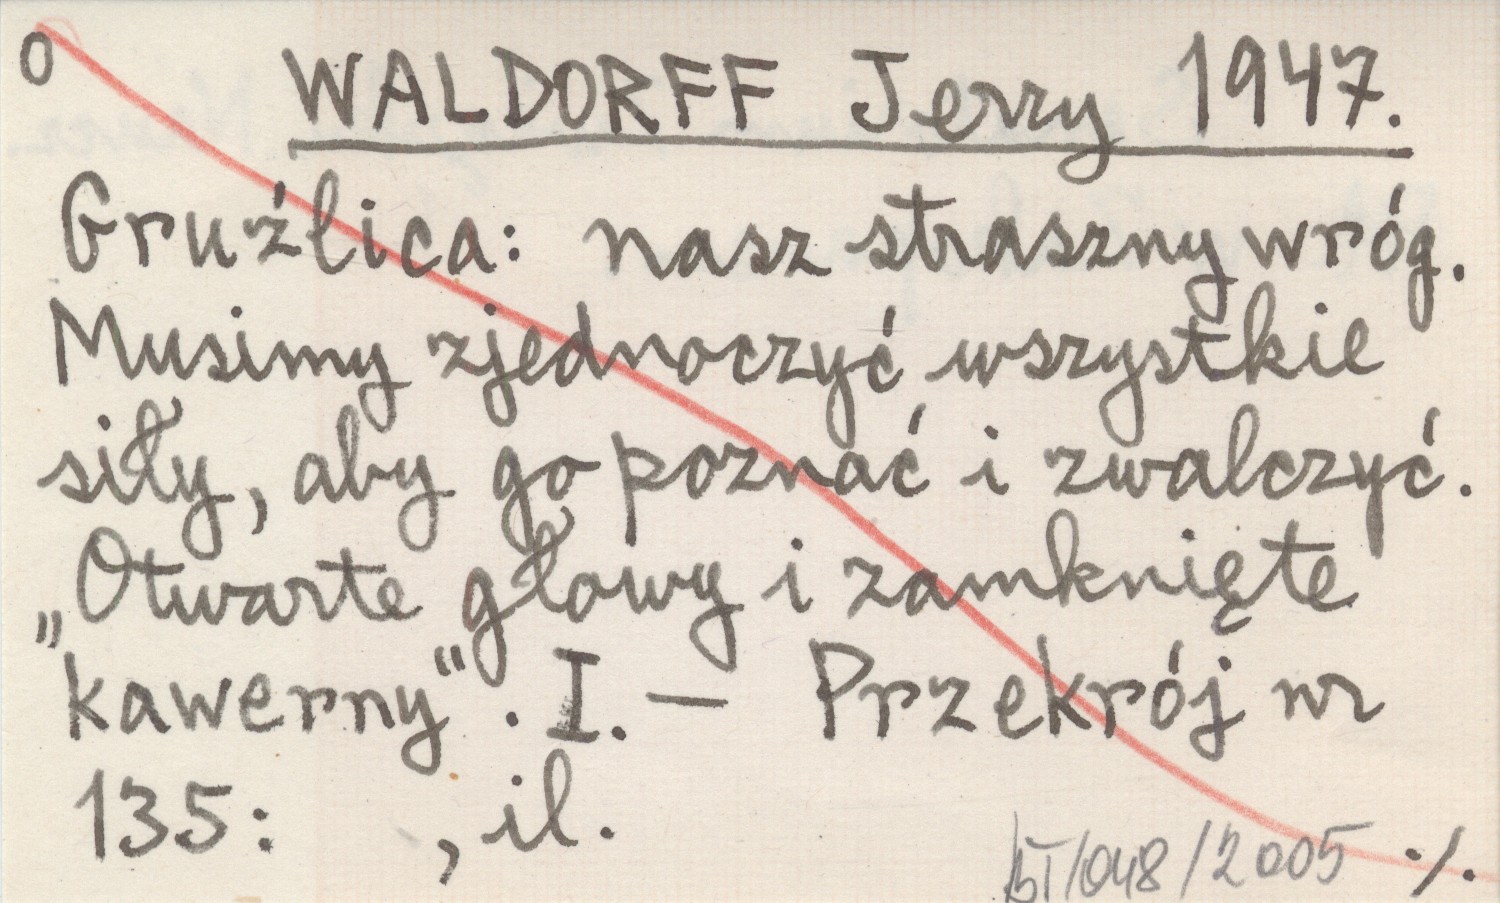 O WALDORFF Jerzy 1947.
Gruźlica: nasz straszny wróg.
Musimy zjednoczyć wszystkie
siły, aby go poznać i zwalczyć.
„Otwarte głowy i zamknięte
kawerny“. I. — Przekrój nr
135: , il.
/048/2005 ./.